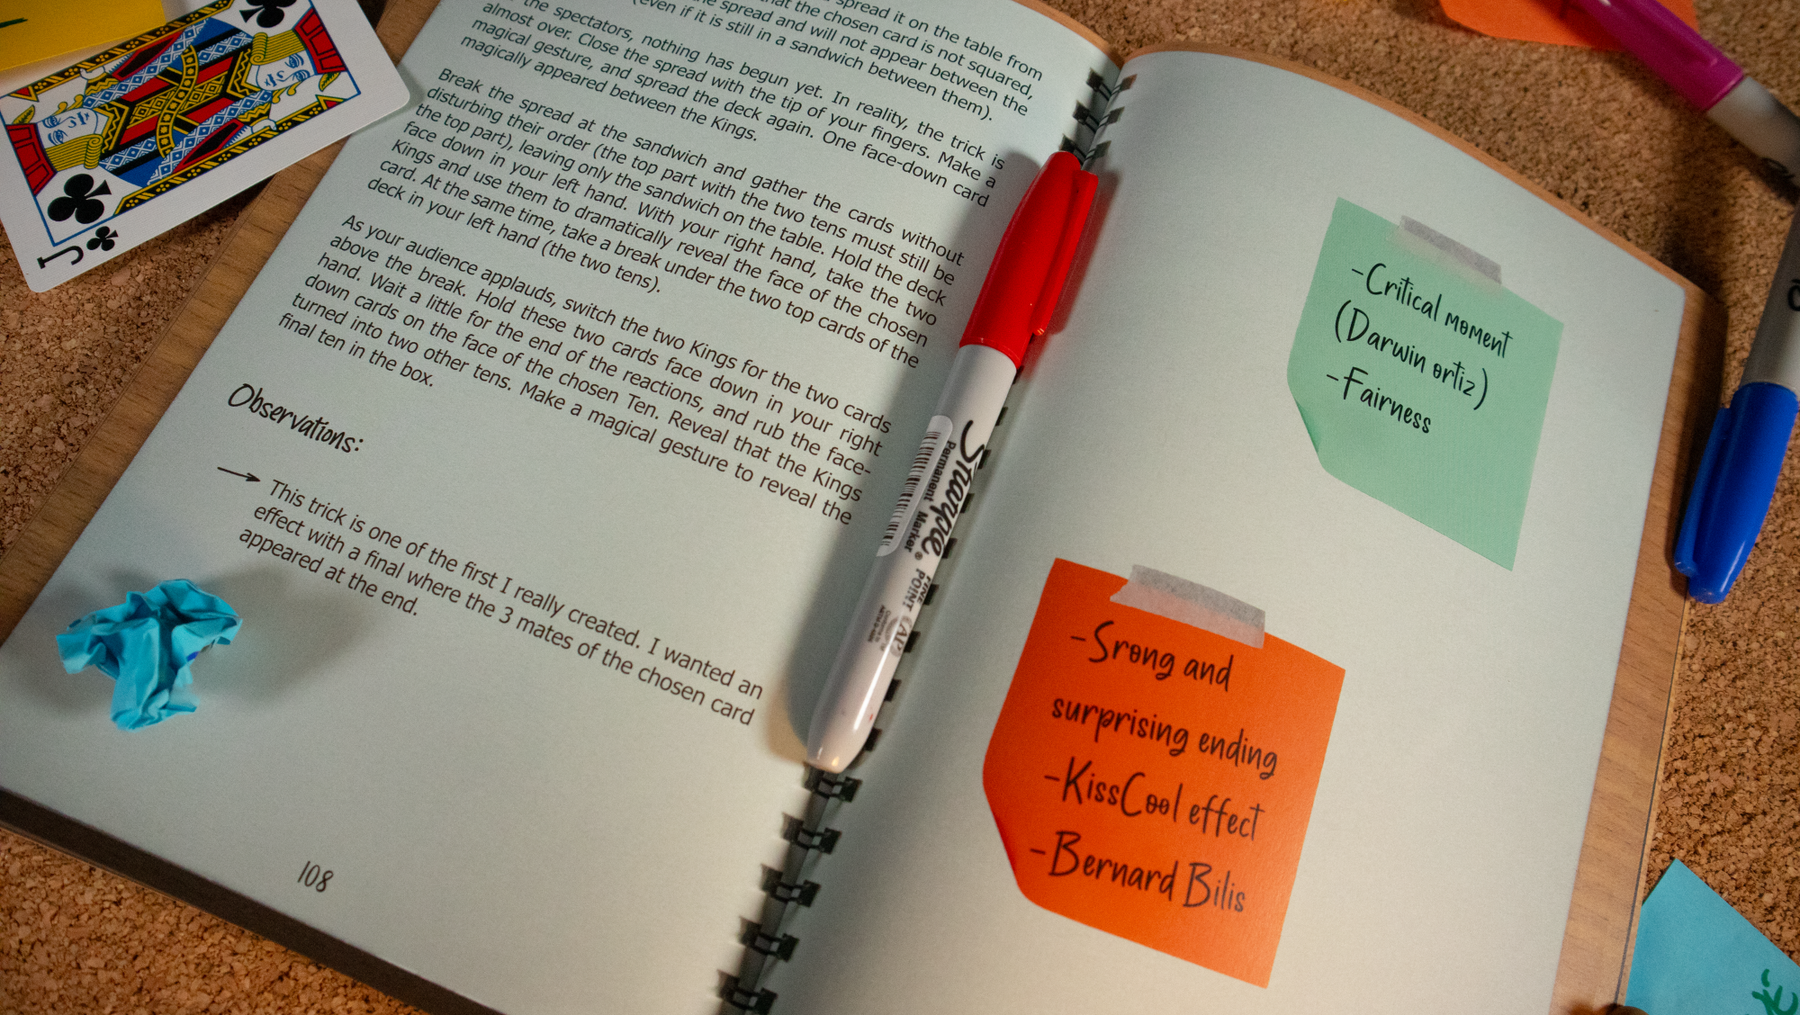 spread it on the table from
that the chosen card is not squared,
the spread and will not appear between the
(even if it is still in a sandwich between them).
the spectators, nothing has begun yet. In reality, the trick is
almost over. Close the spread with the tip of your fingers. Make a
magical gesture, and spread the deck again. One face-down card
magically appeared between the Kings.
Break the spread at the sandwich and gather the cards without
disturbing their order (the top part with the two tens must still be
the top part), leaving only the sandwich on the table. Hold the deck
face down in your left hand. With your right hand, take the two
Kings and use them to dramatically reveal the face of the chosen
card. At the same time, take a break under the two top cards of the
deck in your left hand (the two tens).
As your audience applauds, switch the two Kings for the two cards
above the break. Hold these two cards face down in your right
hand. Wait a little for the end of the reactions, and rub the face-
down cards on the face of the chosen Ten. Reveal that the Kings
turned into two other tens. Make a magical gesture to reveal the
final ten in the box.
Observations:
This trick is one of the first I really created. I wanted an
effect with a final where the 3 mates of the chosen card
appeared at the end.
108
J
Sharpie
Permanent Marker
FINE
POINT
-Critical moment
(Darwin ortiz)
-Fairness
-Srong and
surprising ending
-KissCool effect
-Bernard Bilis